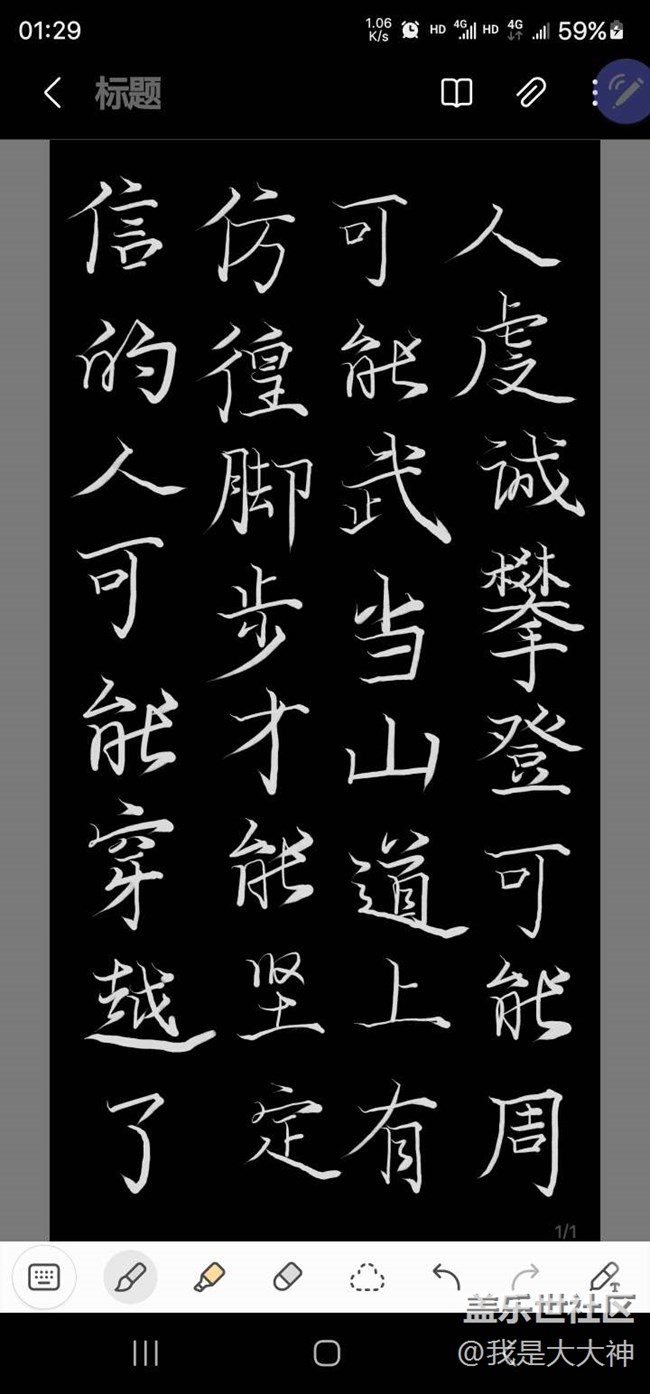 01:29
1.06 K/s HD 4G HD 4G 59%
标题
信的人可能穿越了
仿徨脚步才能坚定
可能武当山道上有
人虔诚攀登可能周
1/1
盖乐世社区
@我是大大神